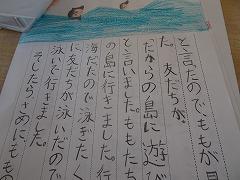 と言たのでももが見
た。友だちが、
「たからの島に遊び
と言いました。ももたち
の島に行きました。行
海だたので泳ぎたく
に友だちが泳いだので
泳いで行きました。
そしたらさめに、もも